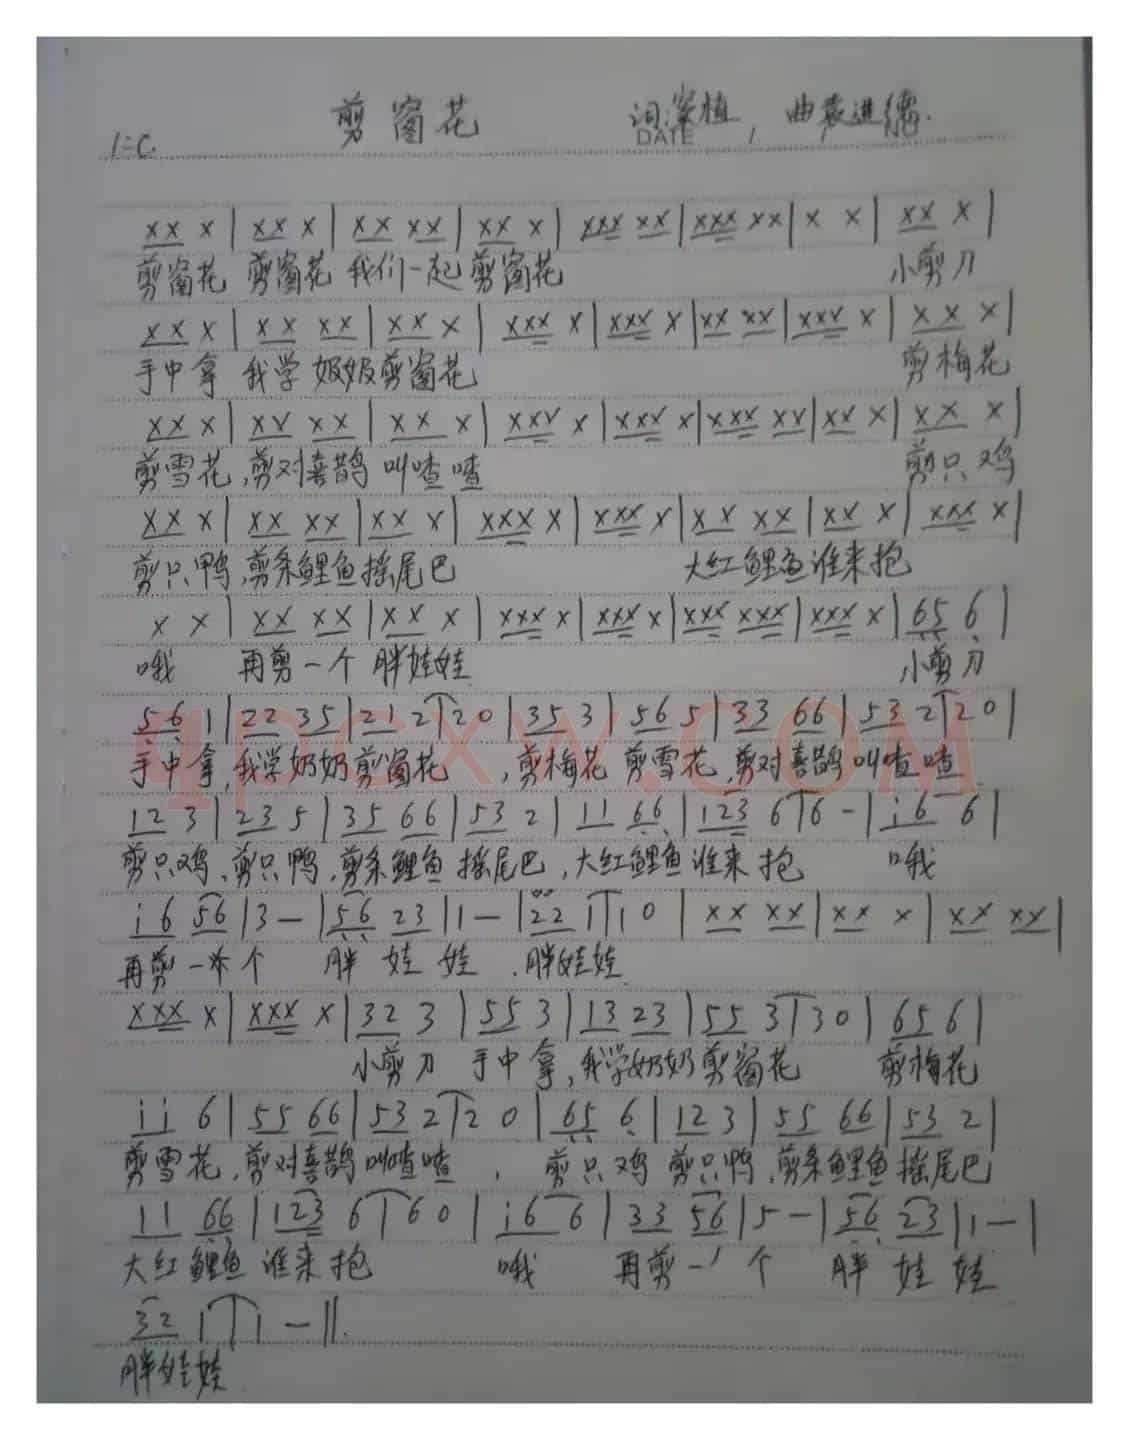 剪窗花 词:案植 曲裴进德.
DATE
1=C.
xx x | xx x | xx xx | xx x | xxx xx | xxx xx | x x | xx x |
剪窗花 剪窗花 我们一起剪窗花 小剪刀
xx x | xx xx | xx x | xxx x | xxx x | xx xx | xxx x | xx x |
手中拿 我学奶奶剪窗花 剪梅花
xx x | xx xx | xx x | xxx x | xxx x | xxx xx | xx x | xx x |
剪雪花,剪对喜鹊叫喳喳 剪只鸡
xx x | xx xx | xx x | xxx x | xxx x | xx xx | xx x | xxx x |
剪只鸭,剪条鲤鱼摇尾巴 大红鲤鱼谁来抱
x x | xx xx | xx x | xxx x | xxx x | xxx xxx | xxx x | 65 6 |
哦 再剪一个胖娃娃 小剪刀
56 1 | 22 35 | 21 2 | 20 | 35 3 | 56 5 | 33 66 | 53 2 | 20 |
手中拿,我学奶奶剪窗花 ,剪梅花 剪雪花,剪对喜鹊叫喳喳
qpcxw.COM
12 3 | 23 5 | 35 66 | 53 2 | 11 66 | 123 6 | 6 - | i6 6 |
剪只鸡,剪只鸭,剪条鲤鱼摇尾巴,大红鲤鱼谁来抱 哦
i6 56 | 3 - | 56 23 | 1 - | 22 1 | 1 0 | xx xx | xx x | xx xx |
再剪一个 胖娃娃.胖娃娃
xxx x | xxx x | 32 3 | 55 3 | 13 23 | 55 3 | 30 | 65 6 |
小剪刀 手中拿,我学奶奶剪窗花 剪梅花
ii 6 | 55 66 | 53 2 | 2 0 | 65 6 | 12 3 | 55 66 | 53 2 |
剪雪花,剪对喜鹊叫喳喳 , 剪只鸡 剪只鸭,剪条鲤鱼摇尾巴
11 66 | 123 6 | 60 | i6 6 | 33 56 | 5 - | 56 23 | 1 - |
大红鲤鱼谁来抱 哦 再剪一个 胖娃娃
32 1 | 1 - ||.
胖娃娃